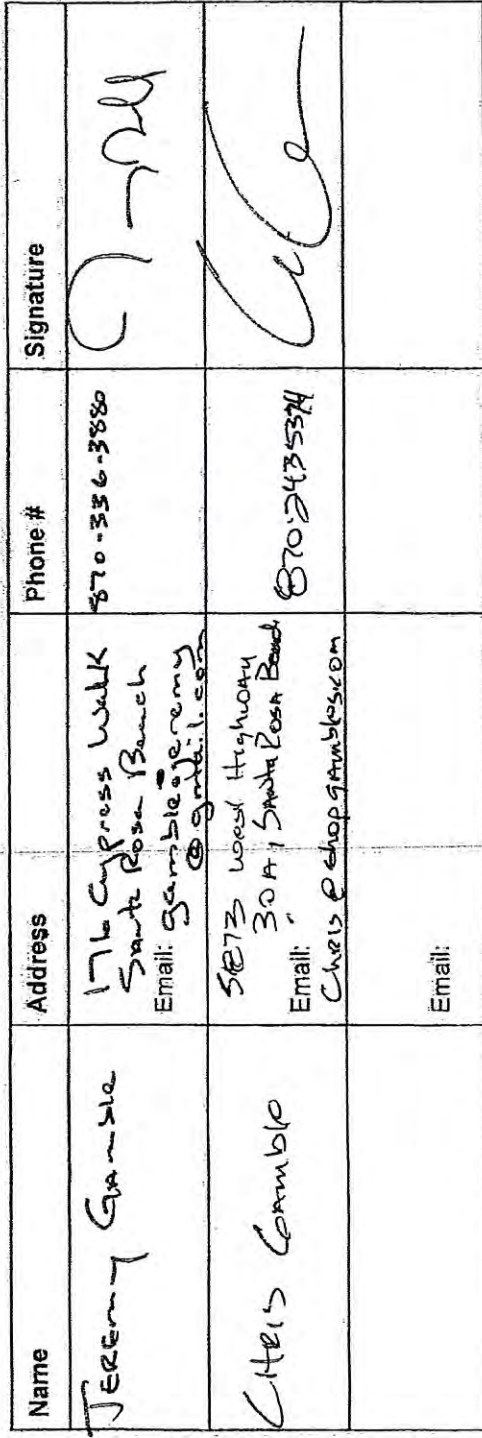 Name Address Phone # Signature
Jeremy Gamble
176 Cypress Walk
Santa Rosa Beach
Email: gamblejeremy
@gmail.com
870-336-3880
Chris Gamble
West Highway
30A, Santa Rosa Beach
Email:
Chris@shopgambles.com
870-243-5374
Email: